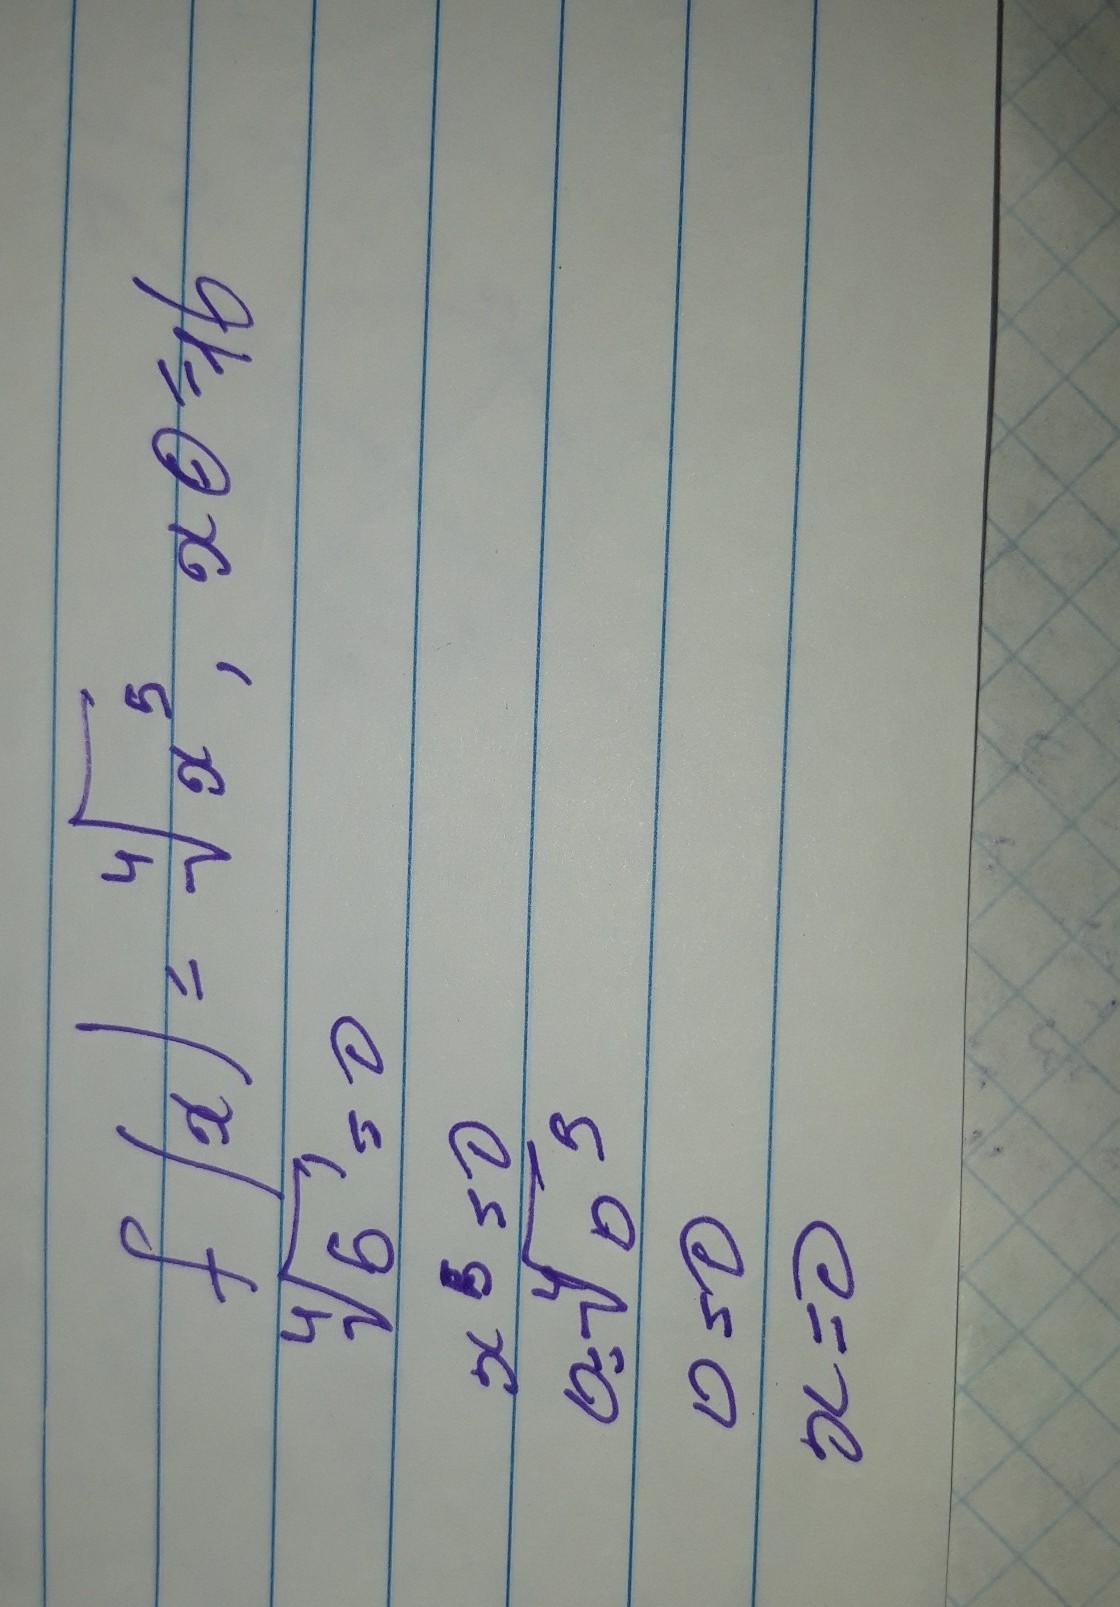 f(x) = ⁴√x⁵, x0 = 16
⁴√6' = 0
x⁵ = 0
0 = ⁴√0⁵
0 = 0
x = 0